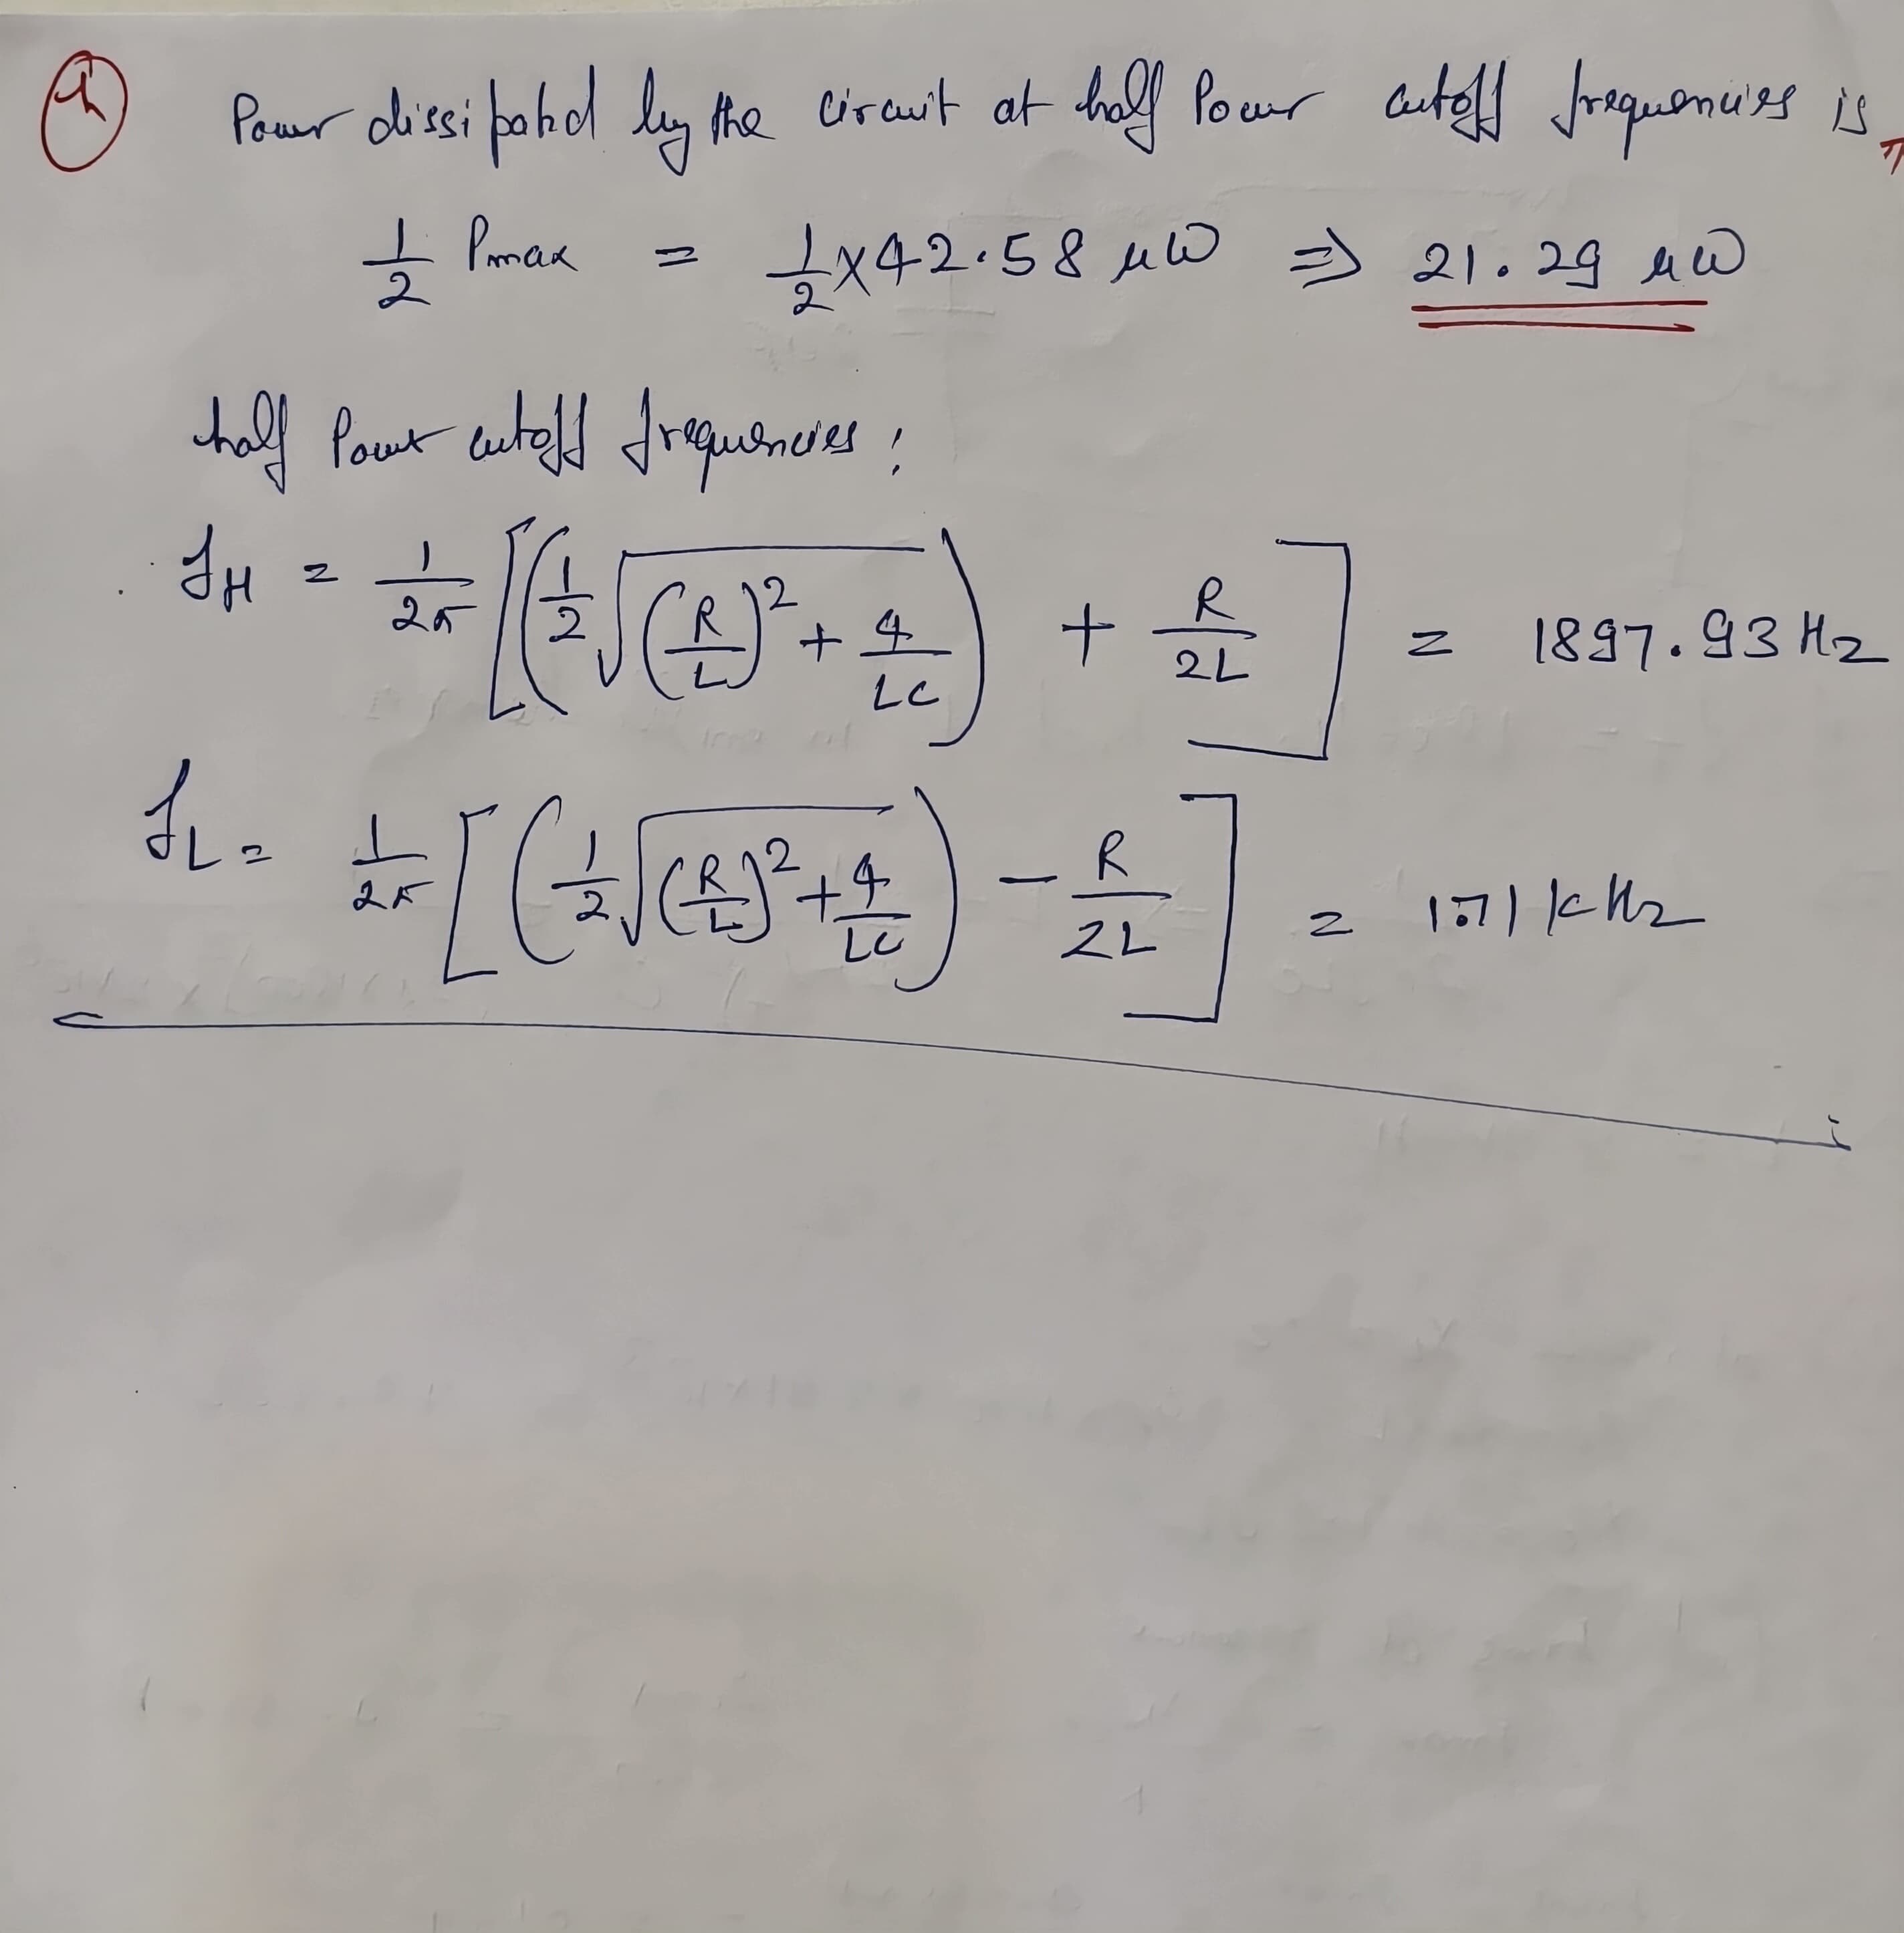 h
Power dissipated by the circuit at half Power cutoff frequencies is,
1/2 Pmax = 1/2 × 42.58 μW ⇒ 21.29 μW
half Power cutoff frequencies:
fH = 1/2π [(1/2 √((R/L)² + 4/LC)) + R/2L] = 1897.93 Hz
fL = 1/2π [(1/2 √((R/L)² + 4/LC)) − R/2L] = 1.71 kHz